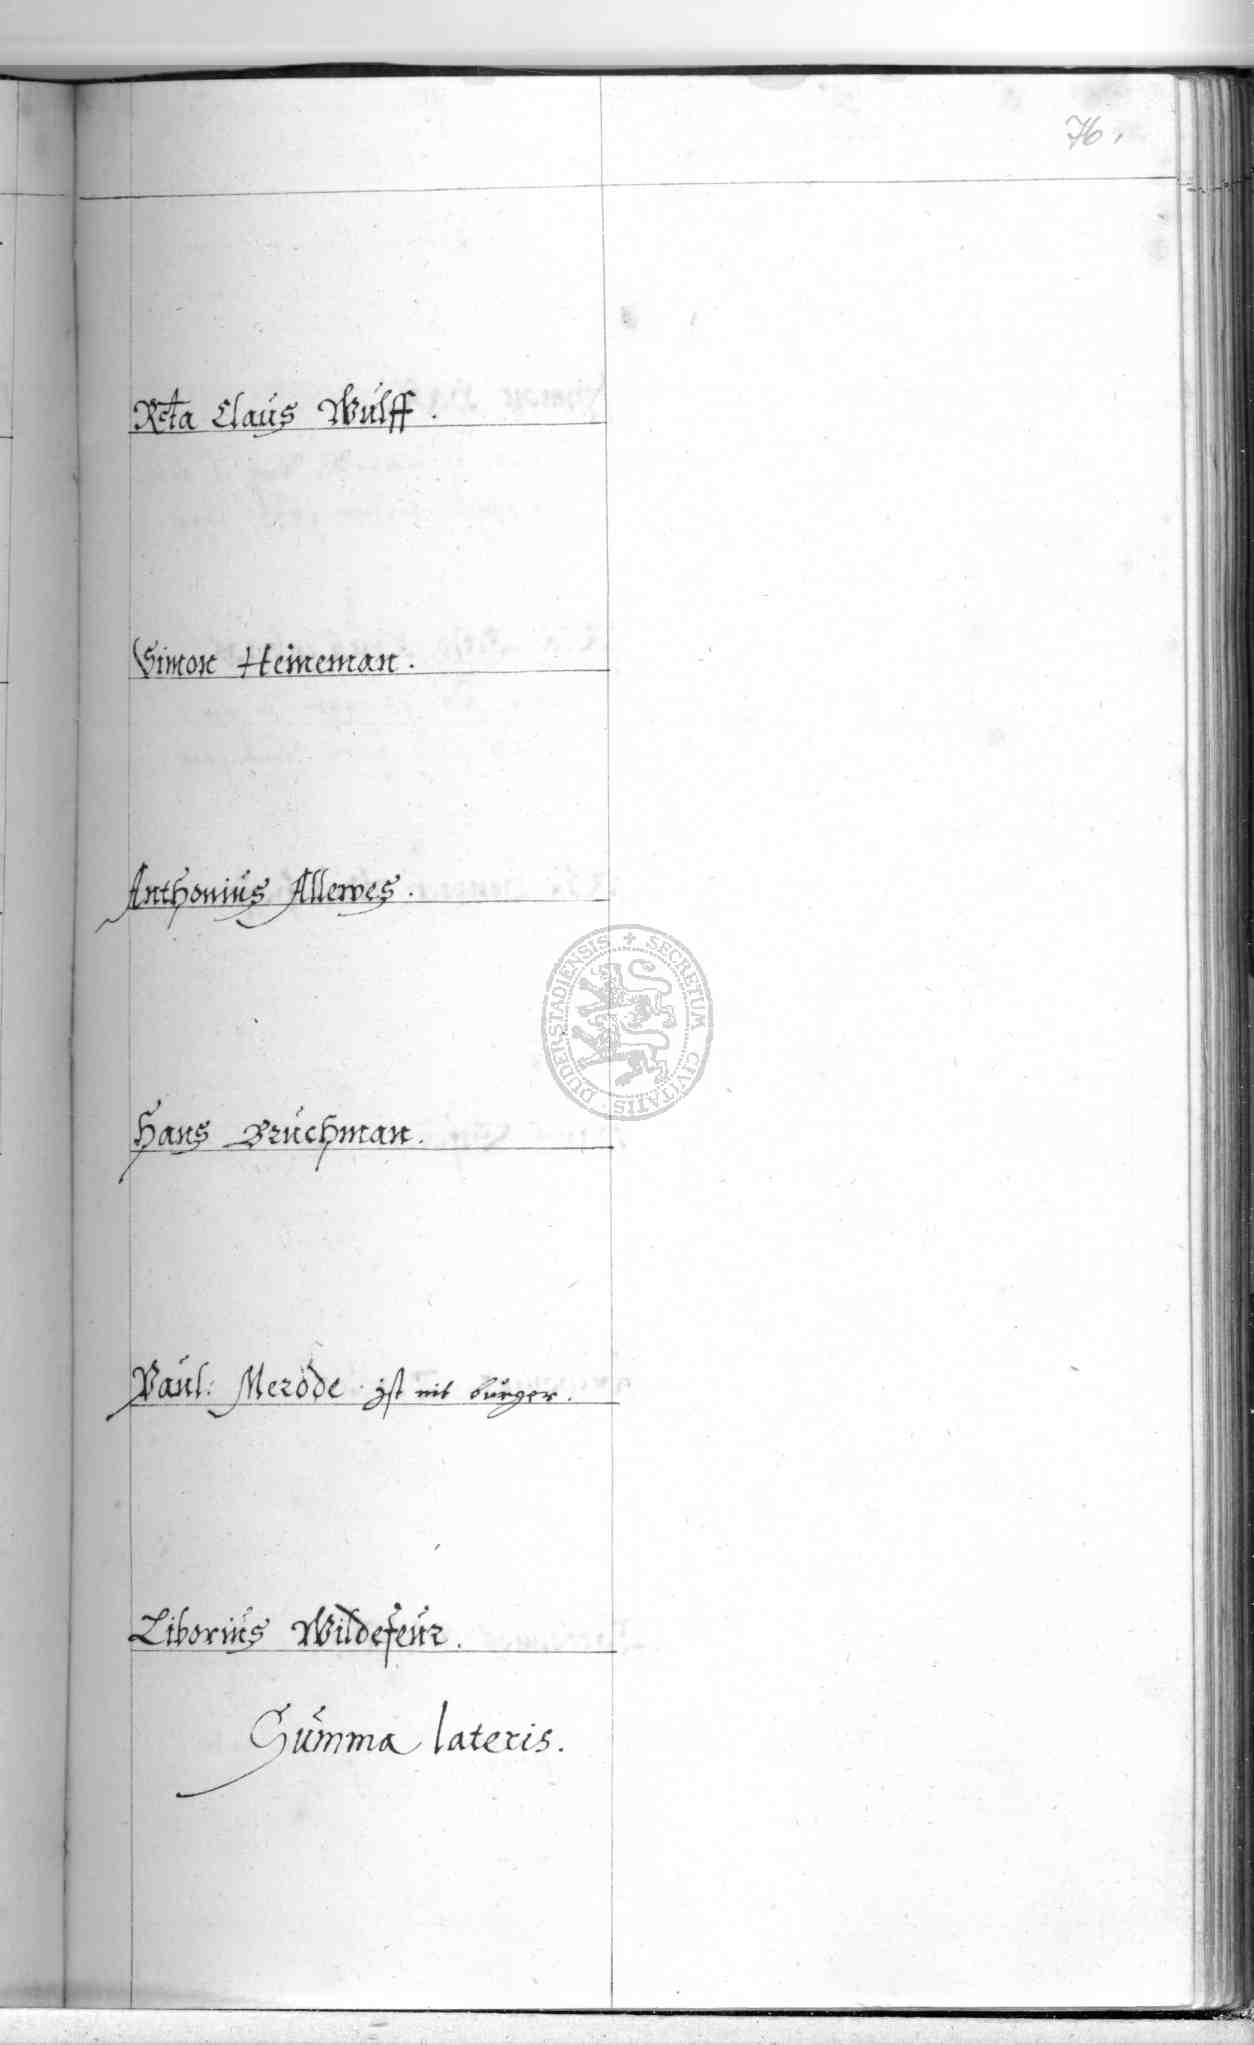 76.
Rcta Claus Wulff.
Simon Heineman.
Anthonius Allewes.
Hans Bruchman.
Paul: Merode ist nit burger.
Liborius Wildefeur.
Summa lateris.
SECRETUM CIVITATIS DUDERSTADIENSIS